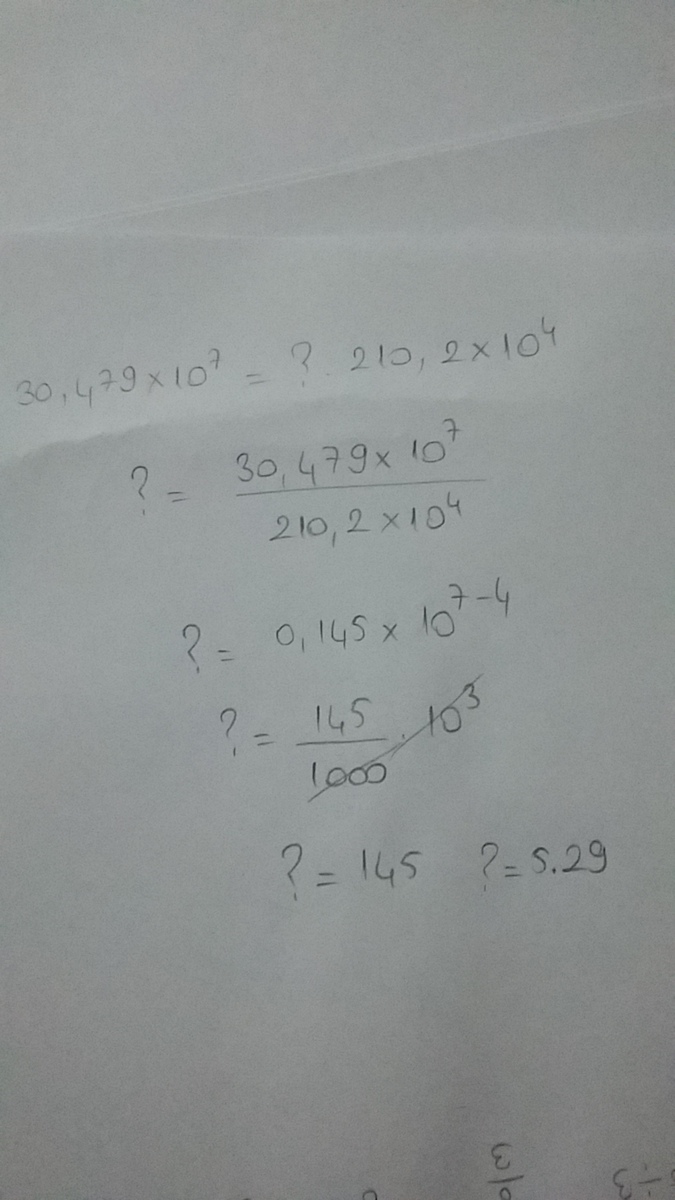 30,479×10⁷ = ? . 210,2×10⁴
? = 30,479×10⁷ / 210,2×10⁴
? = 0,145×10⁷⁻⁴
? = 145 / 1000 . 10³
? = 145 ? = 5.29